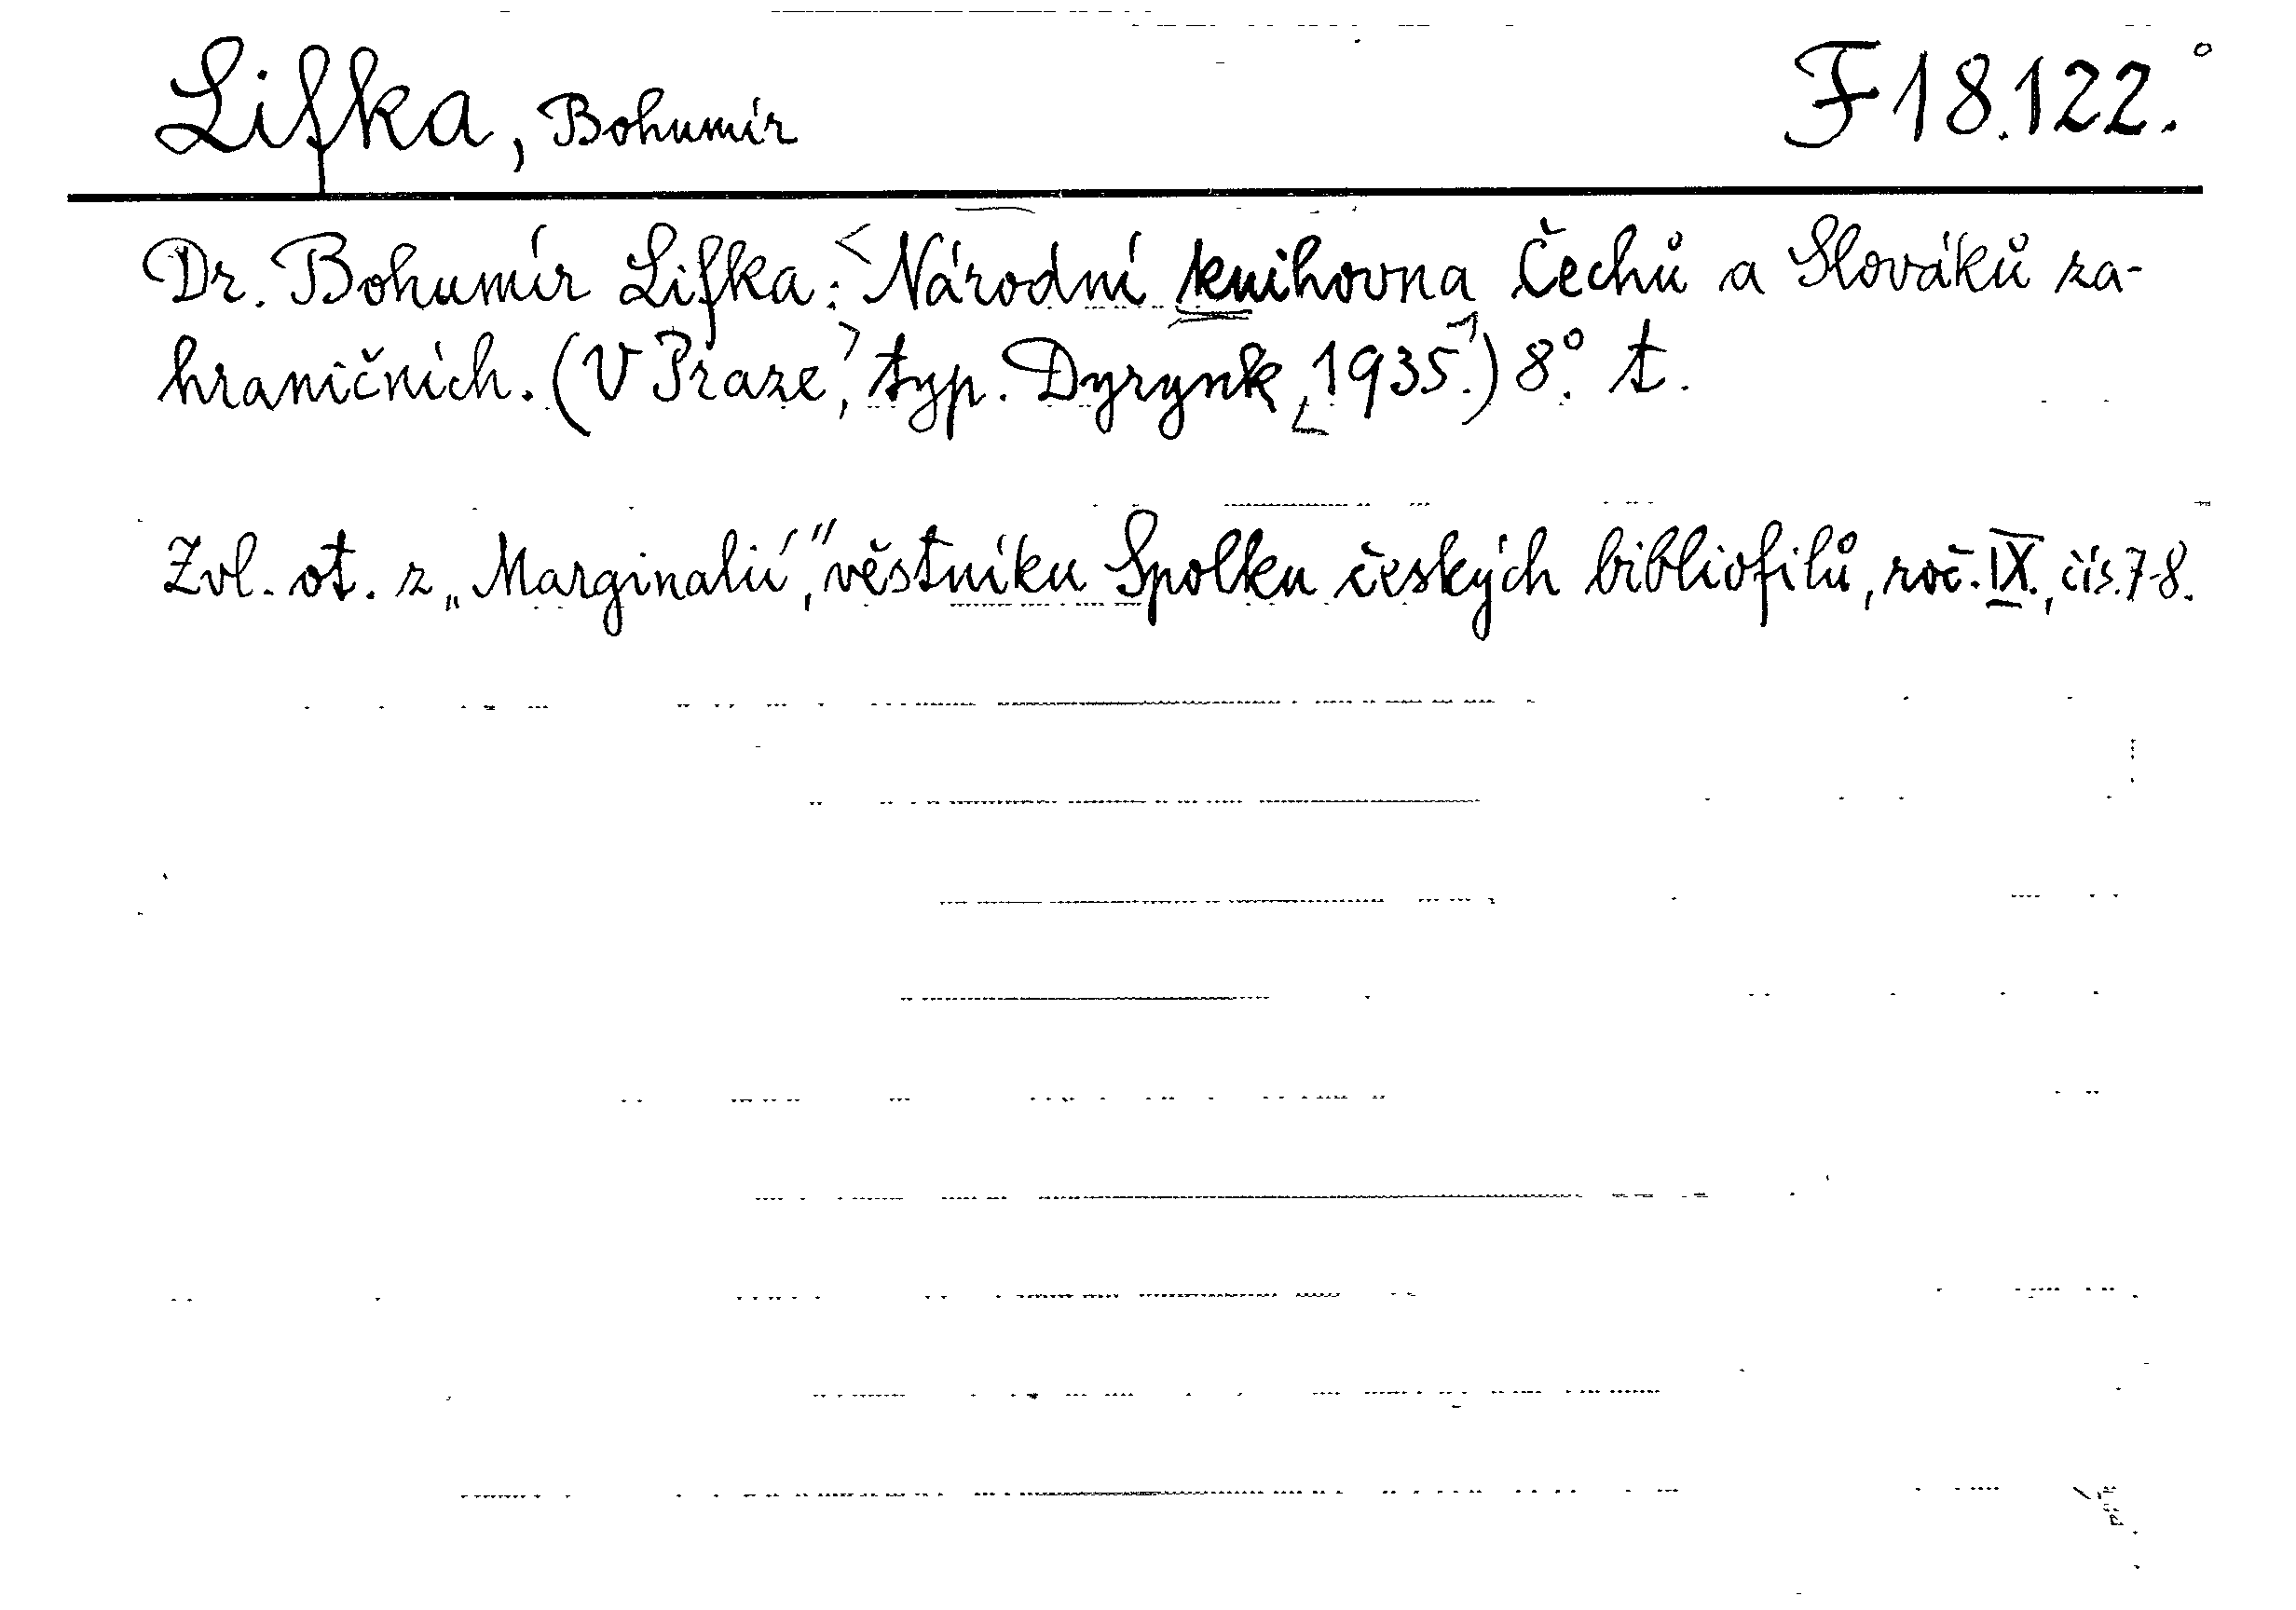 Lifka, Bohumír F 18.122.°
Dr. Bohumír Lifka: <Národní knihovna Čechů a Slováků za-
hraničních. (V Praze,> typ. Dyrynk, 1935.) 8°. t.
Zvl. ot. z „Marginalií,“ věstníku Spolku českých bibliofilů, roč. IX., čís. 7-8.